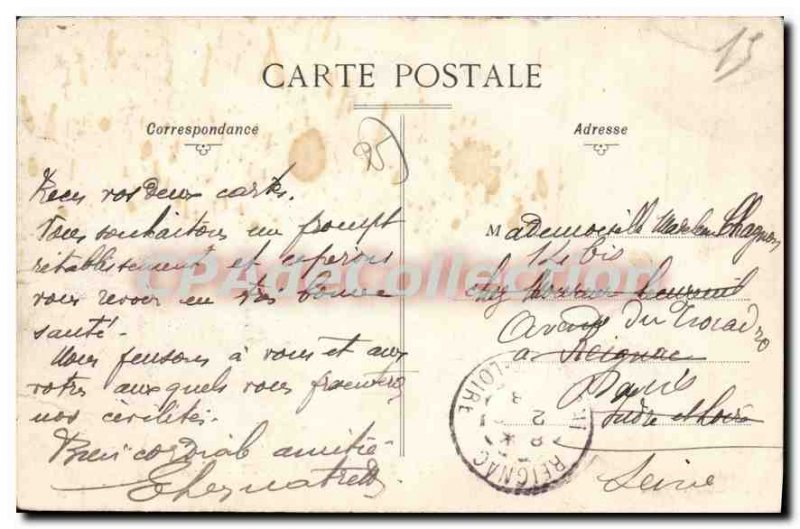 15
CARTE POSTALE
Correspondance
Adresse
25
Reçu vos deux cartes.
Vous souhaitons un prompt
rétablissement et espérons
vous revoir en très bonne
santé.
Nous pensons à vous et aux
votres auxquels vous présenterez
nos civilités.
Bien cordiale amitié
Mademoiselle Chagnon
14 bis
chez Monsieur
Avenue du Trocadéro
a Reignac
Paris
Indre et Loire
Seine
REIGNAC
LOIRE
CPADeCollection.com